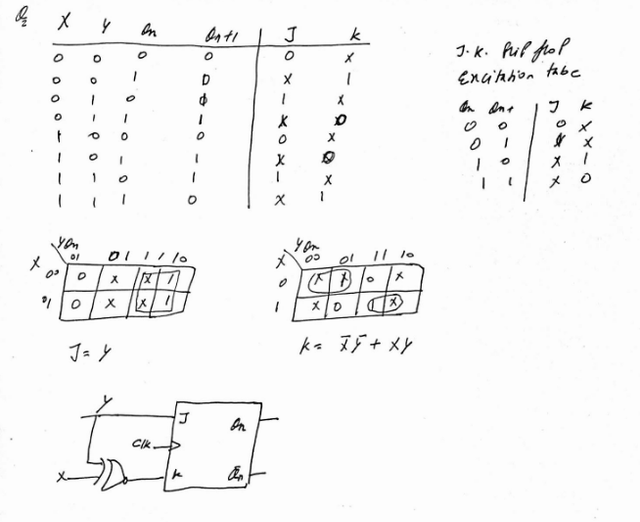 Q2
X Y Qn Qn+1 J K
0 0 0 0 0 X
0 0 1 0 X 1
0 1 0 1 X
0 1 1 1 X 0
1 0 0 0 0 X
1 0 1 1 X 0
1 1 0 1 1 X
1 1 1 0 X 1
J.K. flip flop
Excitation table
Qn Qn+ J K
0 0 0 X
0 1 X
1 0 X 1
1 1 X 0
YQn
X 01 01 11 10
00 0 X X 1
01 0 X X 1
J = Y
YQn
X 00 01 11 10
0 X X 0 X
1 X 0 1 X
K = X̄Ȳ + XY
Y
J Qn
Clk
X K Q̄n